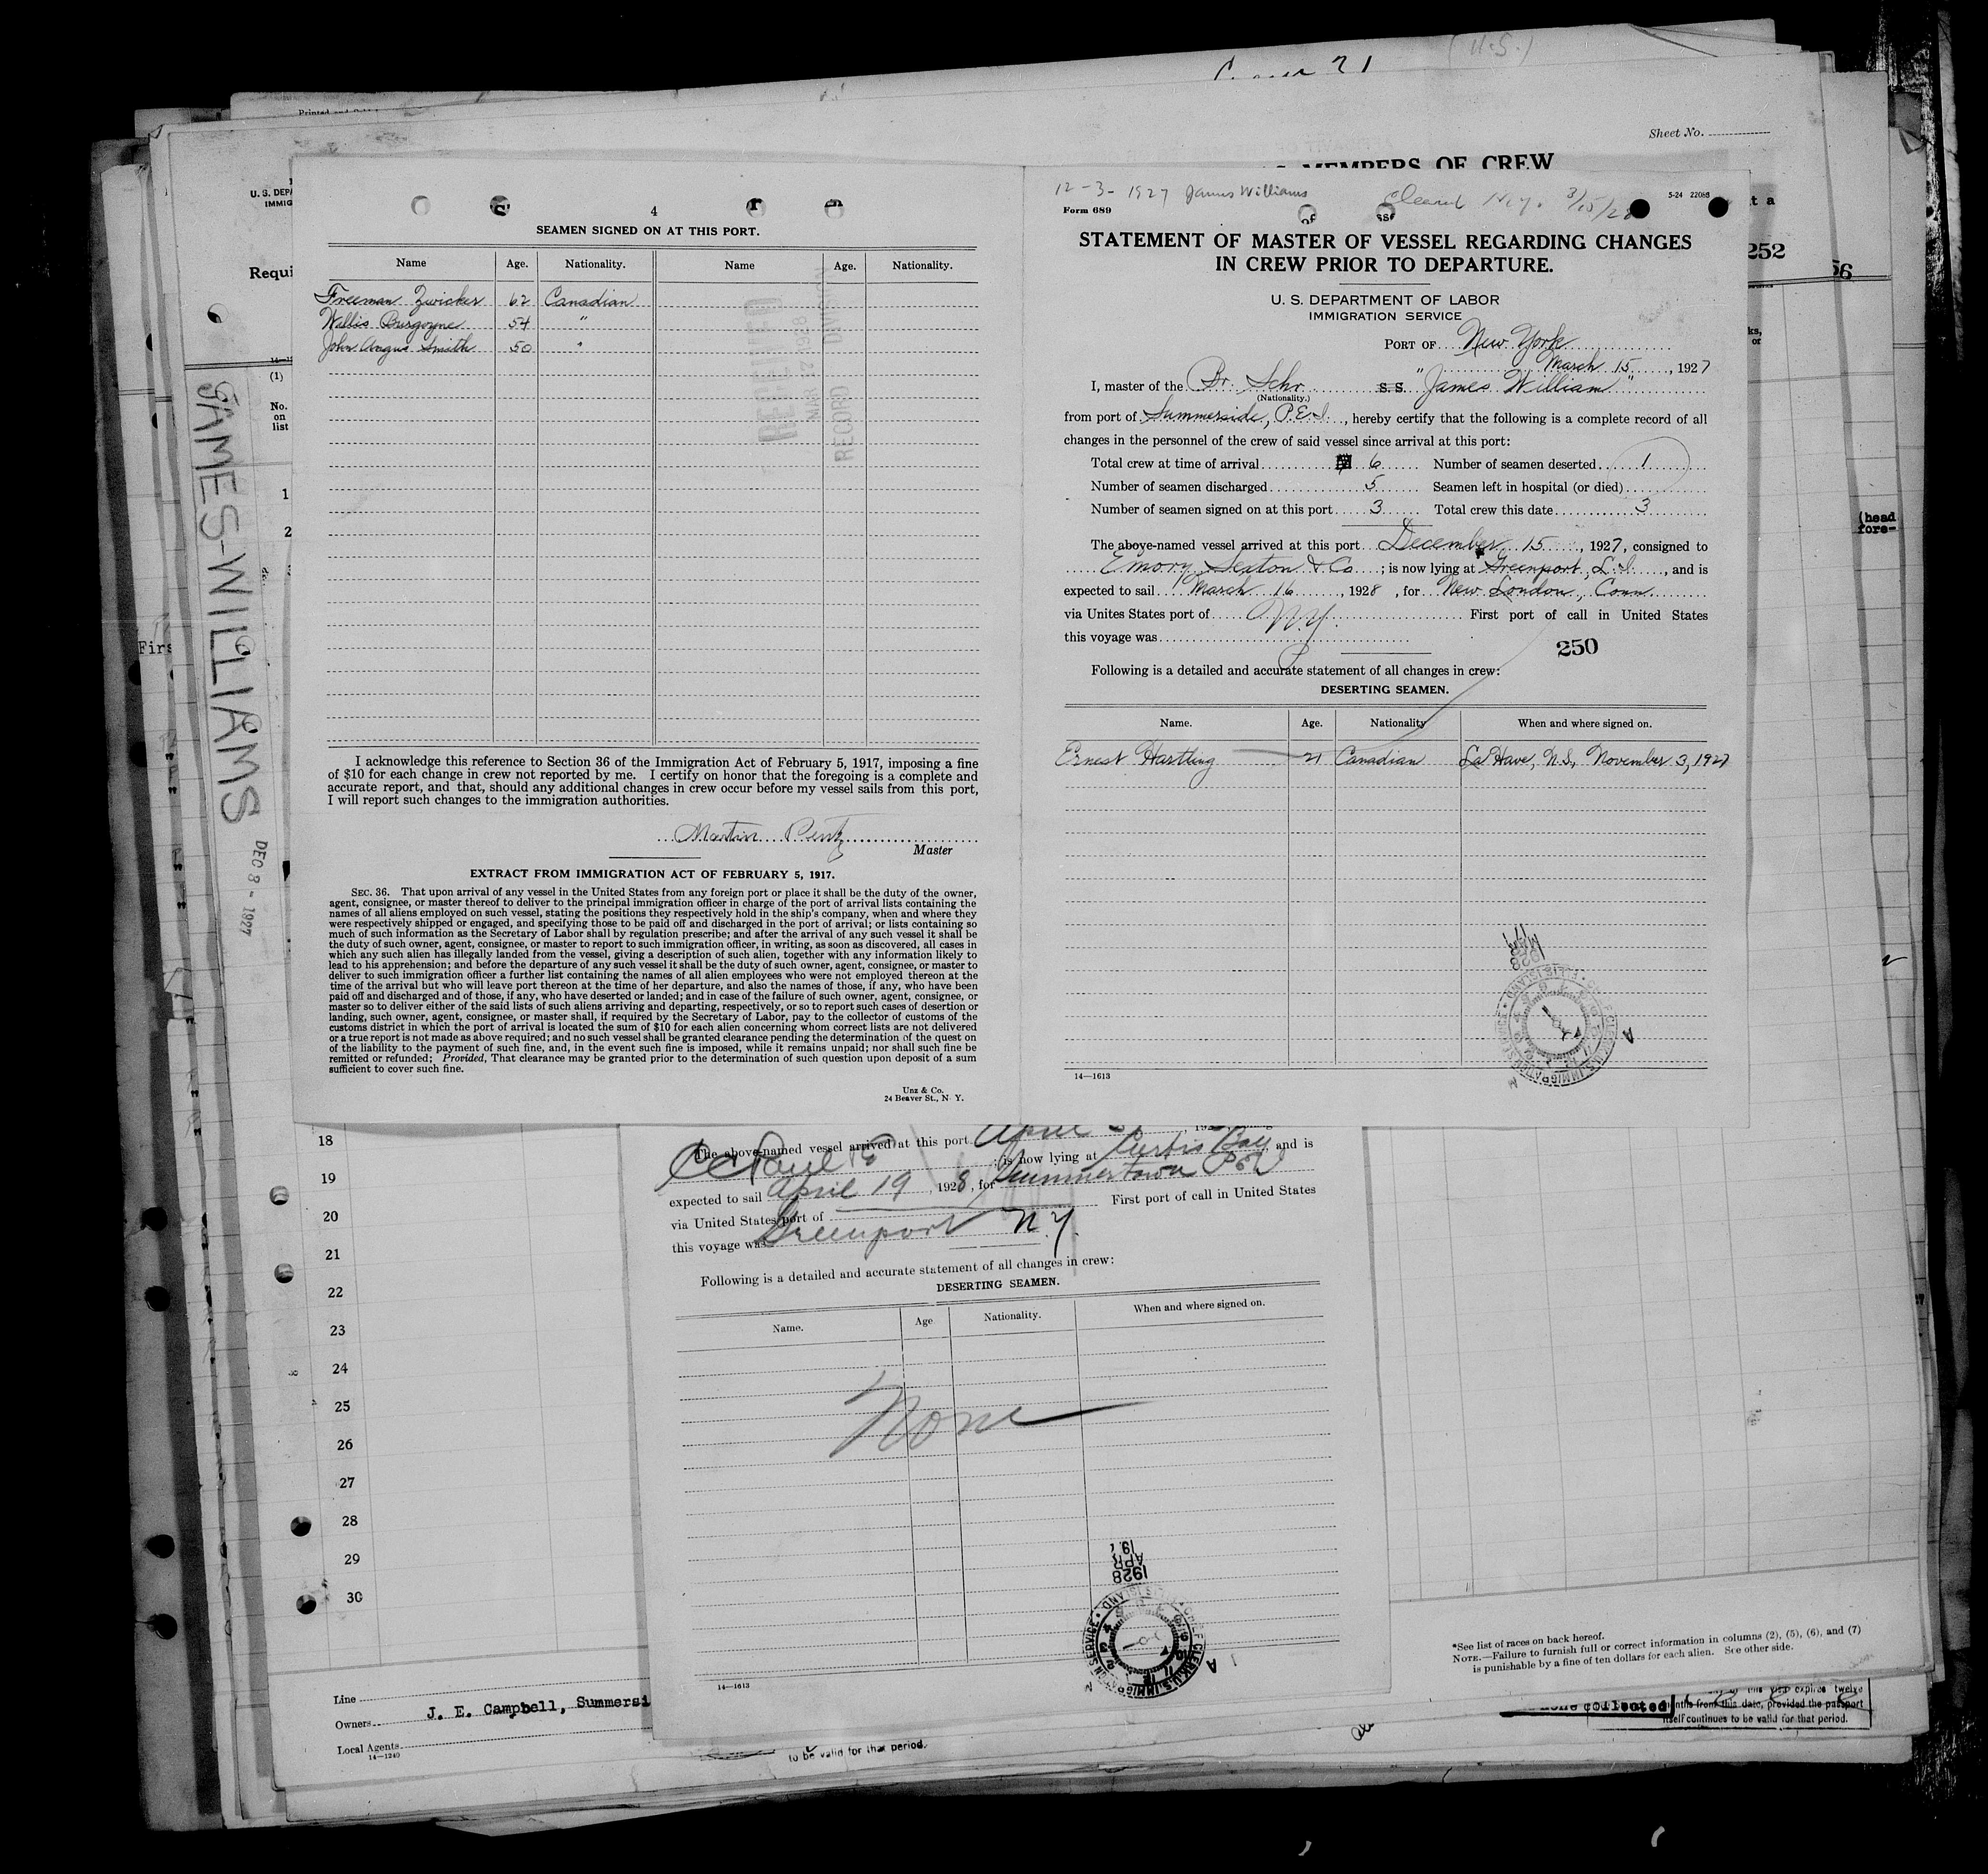 (U.S.)
Sheet No.
MEMBERS OF CREW
U. S. DEP
IMMIG
Requi
(1)
No.
on
list
1
2
JAMES-WILLIAMS
DEC 8 - 1927
Firs
4
SEAMEN SIGNED ON AT THIS PORT.
Name Age. Nationality. Name Age. Nationality.
Freeman Zwicker 62 Canadian
Wallis Burgoyne 54 "
John Angus Smith 50 "
RECEIVED
MAR 17 1928
RECORD DIVISION
I acknowledge this reference to Section 36 of the Immigration Act of February 5, 1917, imposing a fine
of $10 for each change in crew not reported by me. I certify on honor that the foregoing is a complete and
accurate report, and that, should any additional changes in crew occur before my vessel sails from this port,
I will report such changes to the immigration authorities.
Martin Pentz
Master
EXTRACT FROM IMMIGRATION ACT OF FEBRUARY 5, 1917.
SEC. 36. That upon arrival of any vessel in the United States from any foreign port or place it shall be the duty of the owner,
agent, consignee, or master thereof to deliver to the principal immigration officer in charge of the port of arrival lists containing the
names of all aliens employed on such vessel, stating the positions they respectively hold in the ship's company, when and where they
were respectively shipped or engaged, and specifying those to be paid off and discharged in the port of arrival; or lists containing so
much of such information as the Secretary of Labor shall by regulation prescribe; and after the arrival of any such vessel it shall be
the duty of such owner, agent, consignee, or master to report to such immigration officer, in writing, as soon as discovered, all cases in
which any such alien has illegally landed from the vessel, giving a description of such alien, together with any information likely to
lead to his apprehension; and before the departure of any such vessel it shall be the duty of such owner, agent, consignee, or master to
deliver to such immigration officer a further list containing the names of all alien employees who were not employed thereon at the
time of the arrival but who will leave port thereon at the time of her departure, and also the names of those, if any, who have been
paid off and discharged and of those, if any, who have deserted or landed; and in case of the failure of such owner, agent, consignee, or
master so to deliver either of the said lists of such aliens arriving and departing, respectively, or so to report such cases of desertion or
landing, such owner, agent, consignee, or master shall, if required by the Secretary of Labor, pay to the collector of customs of the
customs district in which the port of arrival is located the sum of $10 for each alien concerning whom correct lists are not delivered
or a true report is not made as above required; and no such vessel shall be granted clearance pending the determination of the quest on
of the liability to the payment of such fine, and, in the event such fine is imposed, while it remains unpaid; nor shall such fine be
remitted or refunded; Provided, That clearance may be granted prior to the determination of such question upon deposit of a sum
sufficient to cover such fine.
Unz & Co.
24 Beaver St., N. Y.
12-3-1927 James Williams Cleared N.Y. 3/15/28
5-24 22088
Form 689
STATEMENT OF MASTER OF VESSEL REGARDING CHANGES
IN CREW PRIOR TO DEPARTURE.
U. S. DEPARTMENT OF LABOR
IMMIGRATION SERVICE
PORT OF New York
March 15, 1927
I, master of the Br. Schr. S.S. "James William"
(Nationality.)
from port of Summerside, P.E.I., hereby certify that the following is a complete record of all
changes in the personnel of the crew of said vessel since arrival at this port:
Total crew at time of arrival 6 Number of seamen deserted 1
Number of seamen discharged 5 Seamen left in hospital (or died)
Number of seamen signed on at this port 3 Total crew this date 3
The above-named vessel arrived at this port December 15, 1927, consigned to
Emory Sexton & Co; is now lying at Greenport, L.I., and is
expected to sail March 16, 1928, for New London, Conn.
via Unites States port of N.Y. First port of call in United States
this voyage was
250
Following is a detailed and accurate statement of all changes in crew:
DESERTING SEAMEN.
Name. Age. Nationality When and where signed on.
Ernest Hartling 21 Canadian La Have, N.S., November 3, 1927
MAR 17 1928
CHIEF CLERK U.S. IMMIGRATION SERVICE ELLIS ISLAND
14—1613
252
56
(head
fore-
18
19
20
21
22
23
24
25
26
27
28
29
30
The above-named vessel arrived at this port April
is now lying at Curtis Bay and is
expected to sail April 19, 1928, for Summertown
via United States port of First port of call in United States
this voyage was Greenport N.Y.
Following is a detailed and accurate statement of all changes in crew:
DESERTING SEAMEN.
Name. Age Nationality. When and where signed on.
None
1928 APR 19
CHIEF CLERK U.S. IMMIGRATION SERVICE ELLIS ISLAND
14—1613
Line
Owners J. E. Campbell, Summersi
Local Agents
14—1240
to be valid for that period.
*See list of races on back hereof.
NOTE.—Failure to furnish full or correct information in columns (2), (5), (6), and (7)
is punishable by a fine of ten dollars for each alien. See other side.
collected
of this visa expires twelve
months from this date, provided the passport
itself continues to be valid for that period.